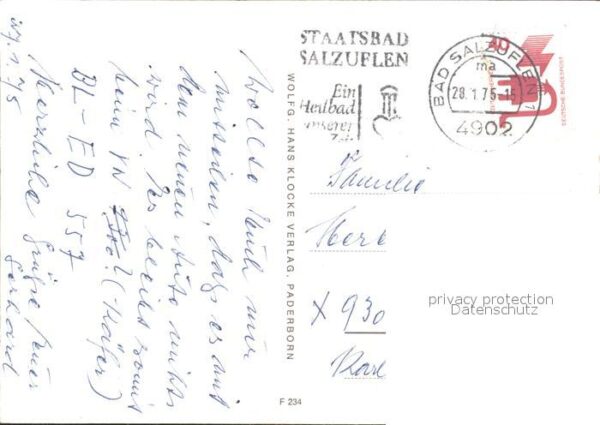 d. 27.1.75
Wollte Euch nur
mitteilen, dass es mit
dem neuen Auto nichts
wird. Es bleibt somit
beim VW (Käfer)
BL-ED 557
Herzliche Grüße Euer
Gerhard
WOLFG. HANS KLOCKE VERLAG, PADERBORN
F 234
STAATSBAD
SALZUFLEN
Ein
Heilbad
unserer
Zeit
BAD SALZUFLEN 1
ma
28.1.75-15
4902
DEUTSCHE BUNDESPOST
Familie
X 930
privacy protection
Datenschutz